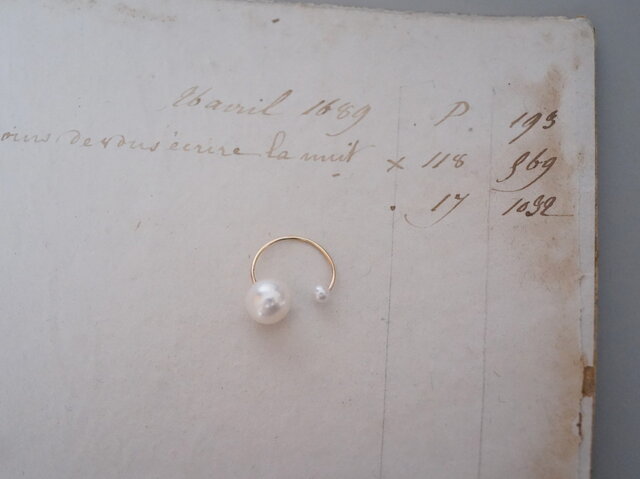 26 avril 1689 P. 193
de vous écrire la nuit x 118 569
17 1032